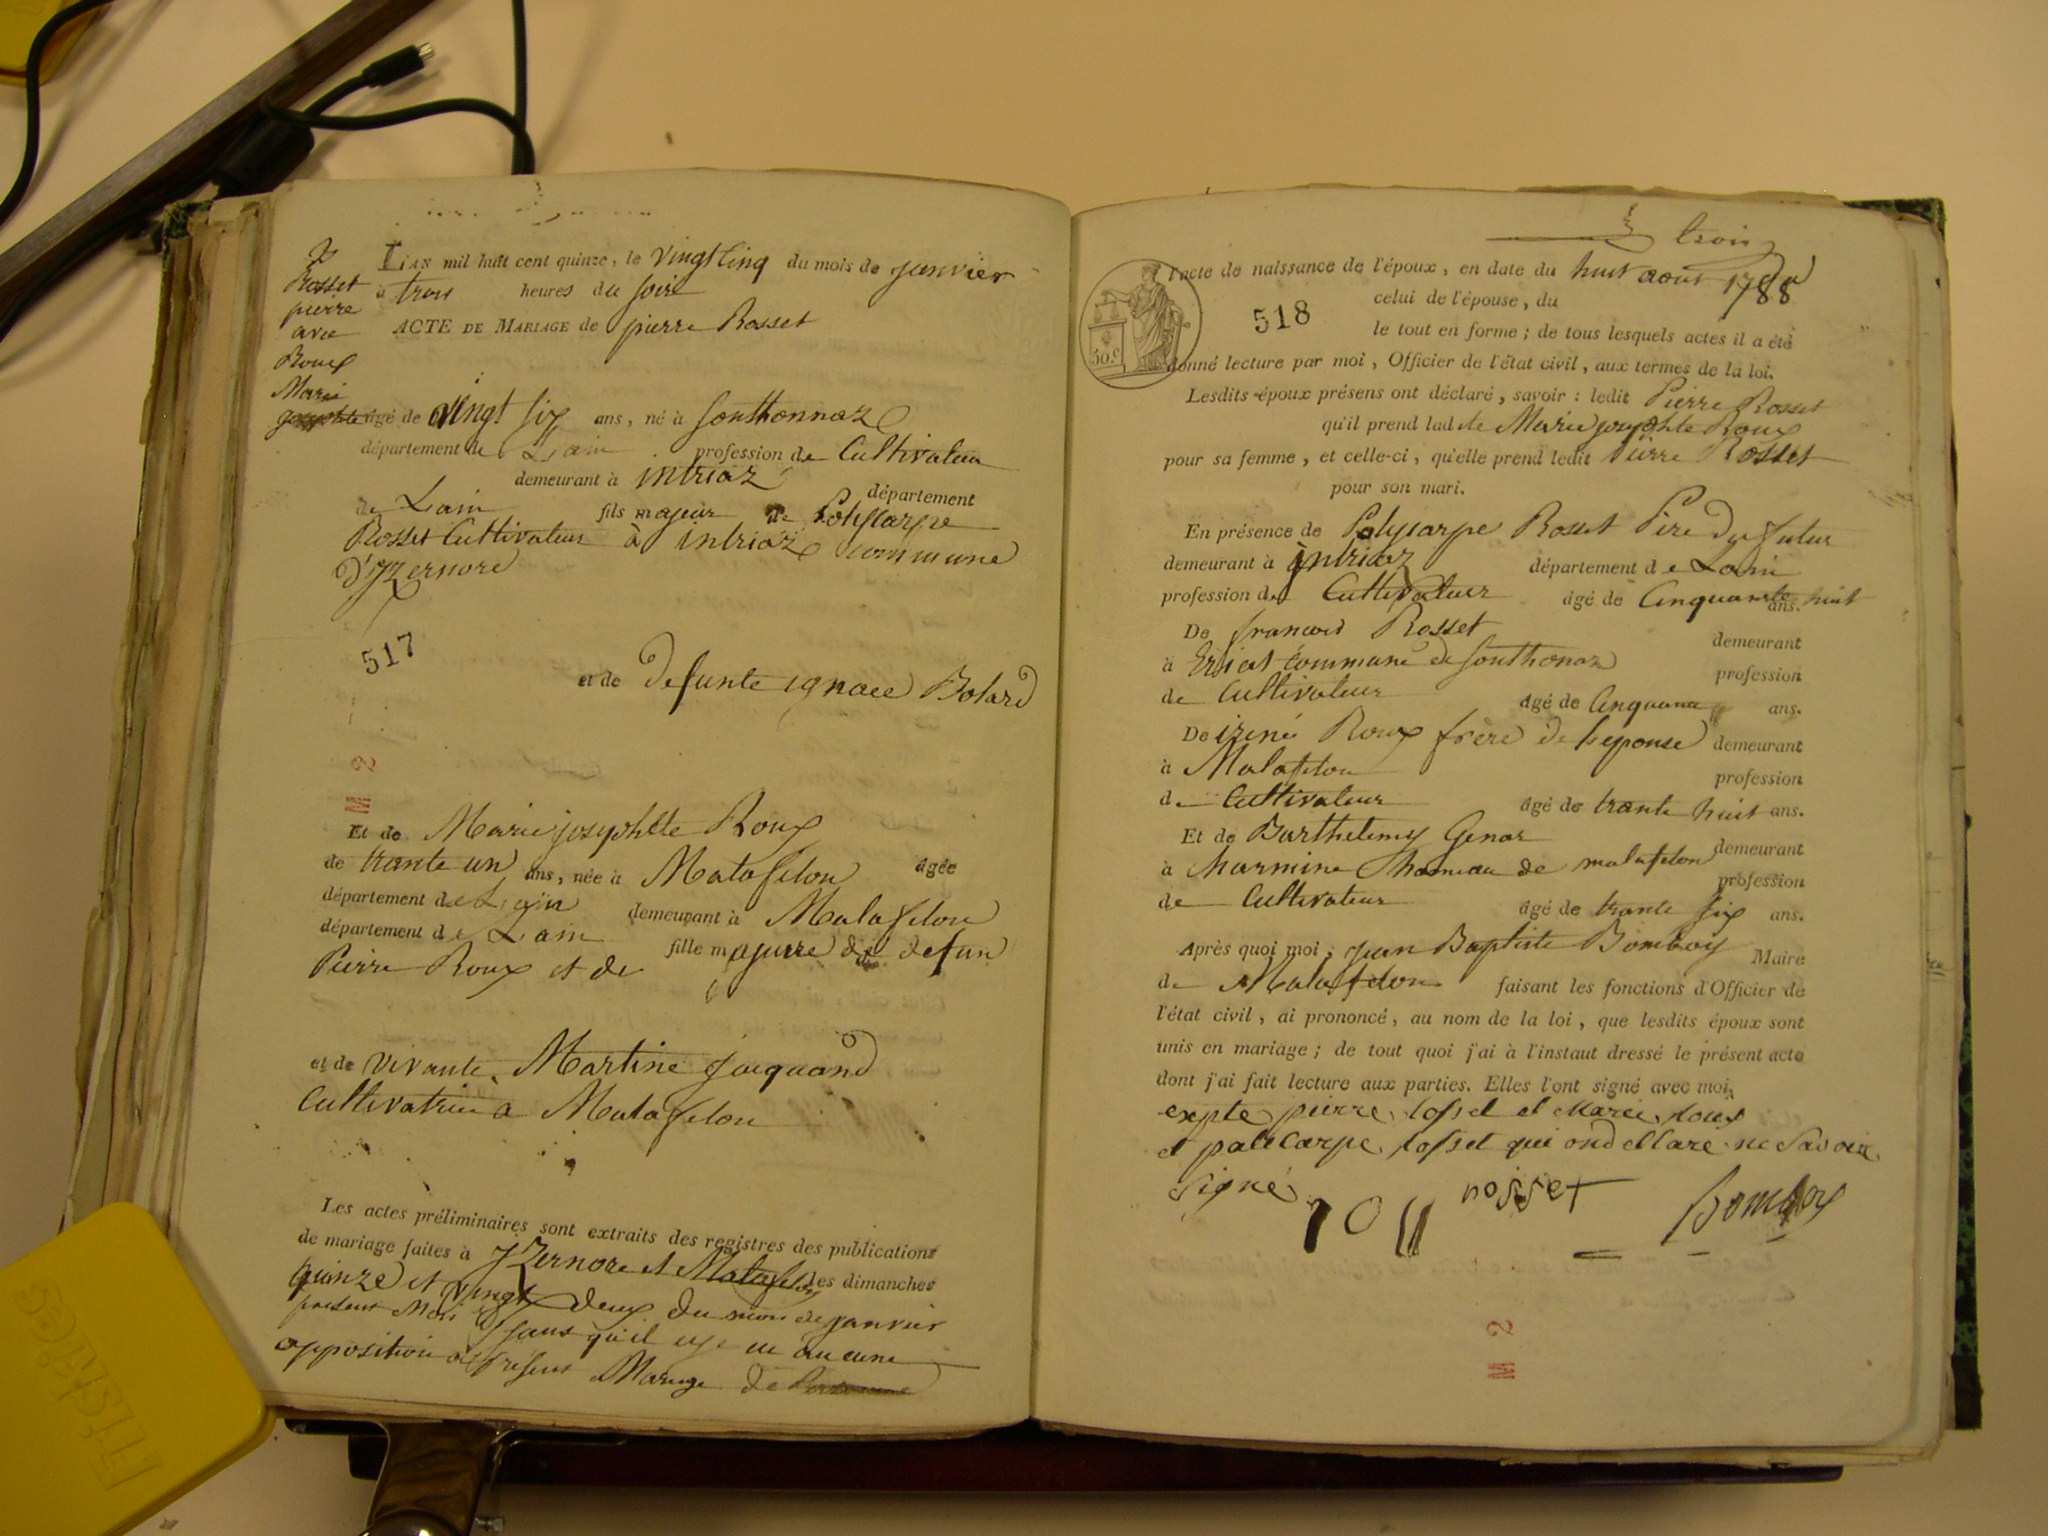 Rosset
pierre
avec
Roux
Marie
josephte
L'an mil huit cent quinze, le vingt cinq du mois de janvier
à trois heures du soire
ACTE DE MARIAGE de pierre Rosset
âgé de vingt six ans, né à Sonthonnaz
département de Lain profession de Cultivateur
demeurant à intriaz département
de Lain fils majeur de Polycarpe
Rosset Cultivateur à intriaz commune
d'yzernore
517
et de defunte ignace Bolard
M 2
Et de Marie josephte Roux âgée
de trante un ans, née à Matafelon
département de Lain demeurant à Matafelon
département de Lain fille majeure de defun
Pierre Roux et de
et de vivante Martine jacquand
Cultivatrice a Matafelon
Les actes préliminaires sont extraits des registres des publications
de mariage faites à yzernore et Matafelon les dimanches
quinze et vingt deux du mois de janvier
present Mois sans qu'il eye eu aucune
opposition au présent Mariage de
trois
l'acte de naissance de l'époux, en date du huit aout 1788
518
celui de l'épouse, du
le tout en forme; de tous lesquels actes il a été
30.c
donné lecture par moi, Officier de l'état civil, aux termes de la loi.
Lesdits époux présens ont déclaré, savoir: ledit Pierre Rosset
qu'il prend ladite Marie josephte Roux
pour sa femme, et celle-ci, qu'elle prend ledit Pierre Rosset
pour son mari.
En présence de Polycarpe Rosset Père du futur
demeurant à intriaz département de Lain
profession de Cultivateur âgé de Cinquante huit ans.
De francois Rosset demeurant
à commune de Sonthonaz profession
de Cultivateur âgé de Cinquante ans.
De irené Roux frère de lepouse demeurant
à Matafelon profession
de Cultivateur âgé de trante huit ans.
Et de Barthelemy Genar demeurant
à Charmine hameau de matafelon profession
de Cultivateur âgé de trante six ans.
Après quoi moi, jean Baptiste Bomboy Maire
de Matafelon faisant les fonctions d'Officier de
l'état civil, ai prononcé, au nom de la loi, que lesdits époux sont
unis en mariage; de tout quoi j'ai à l'instant dressé le présent acte
dont j'ai fait lecture aux parties. Elles l'ont signé avec moi,
expte pierre rosset et marie roux
et policarpe rosset qui ond ecllaré ne savoir
signé
rosset Bomboy
M 2